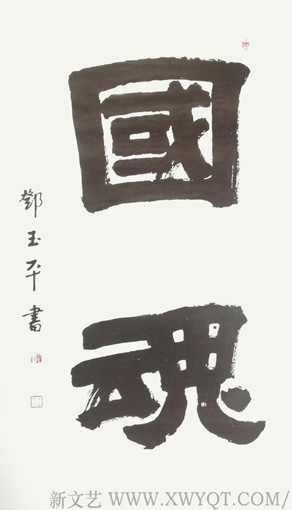 國魂
鄧玉平書
新文艺 WWW.XWYQT.COM/